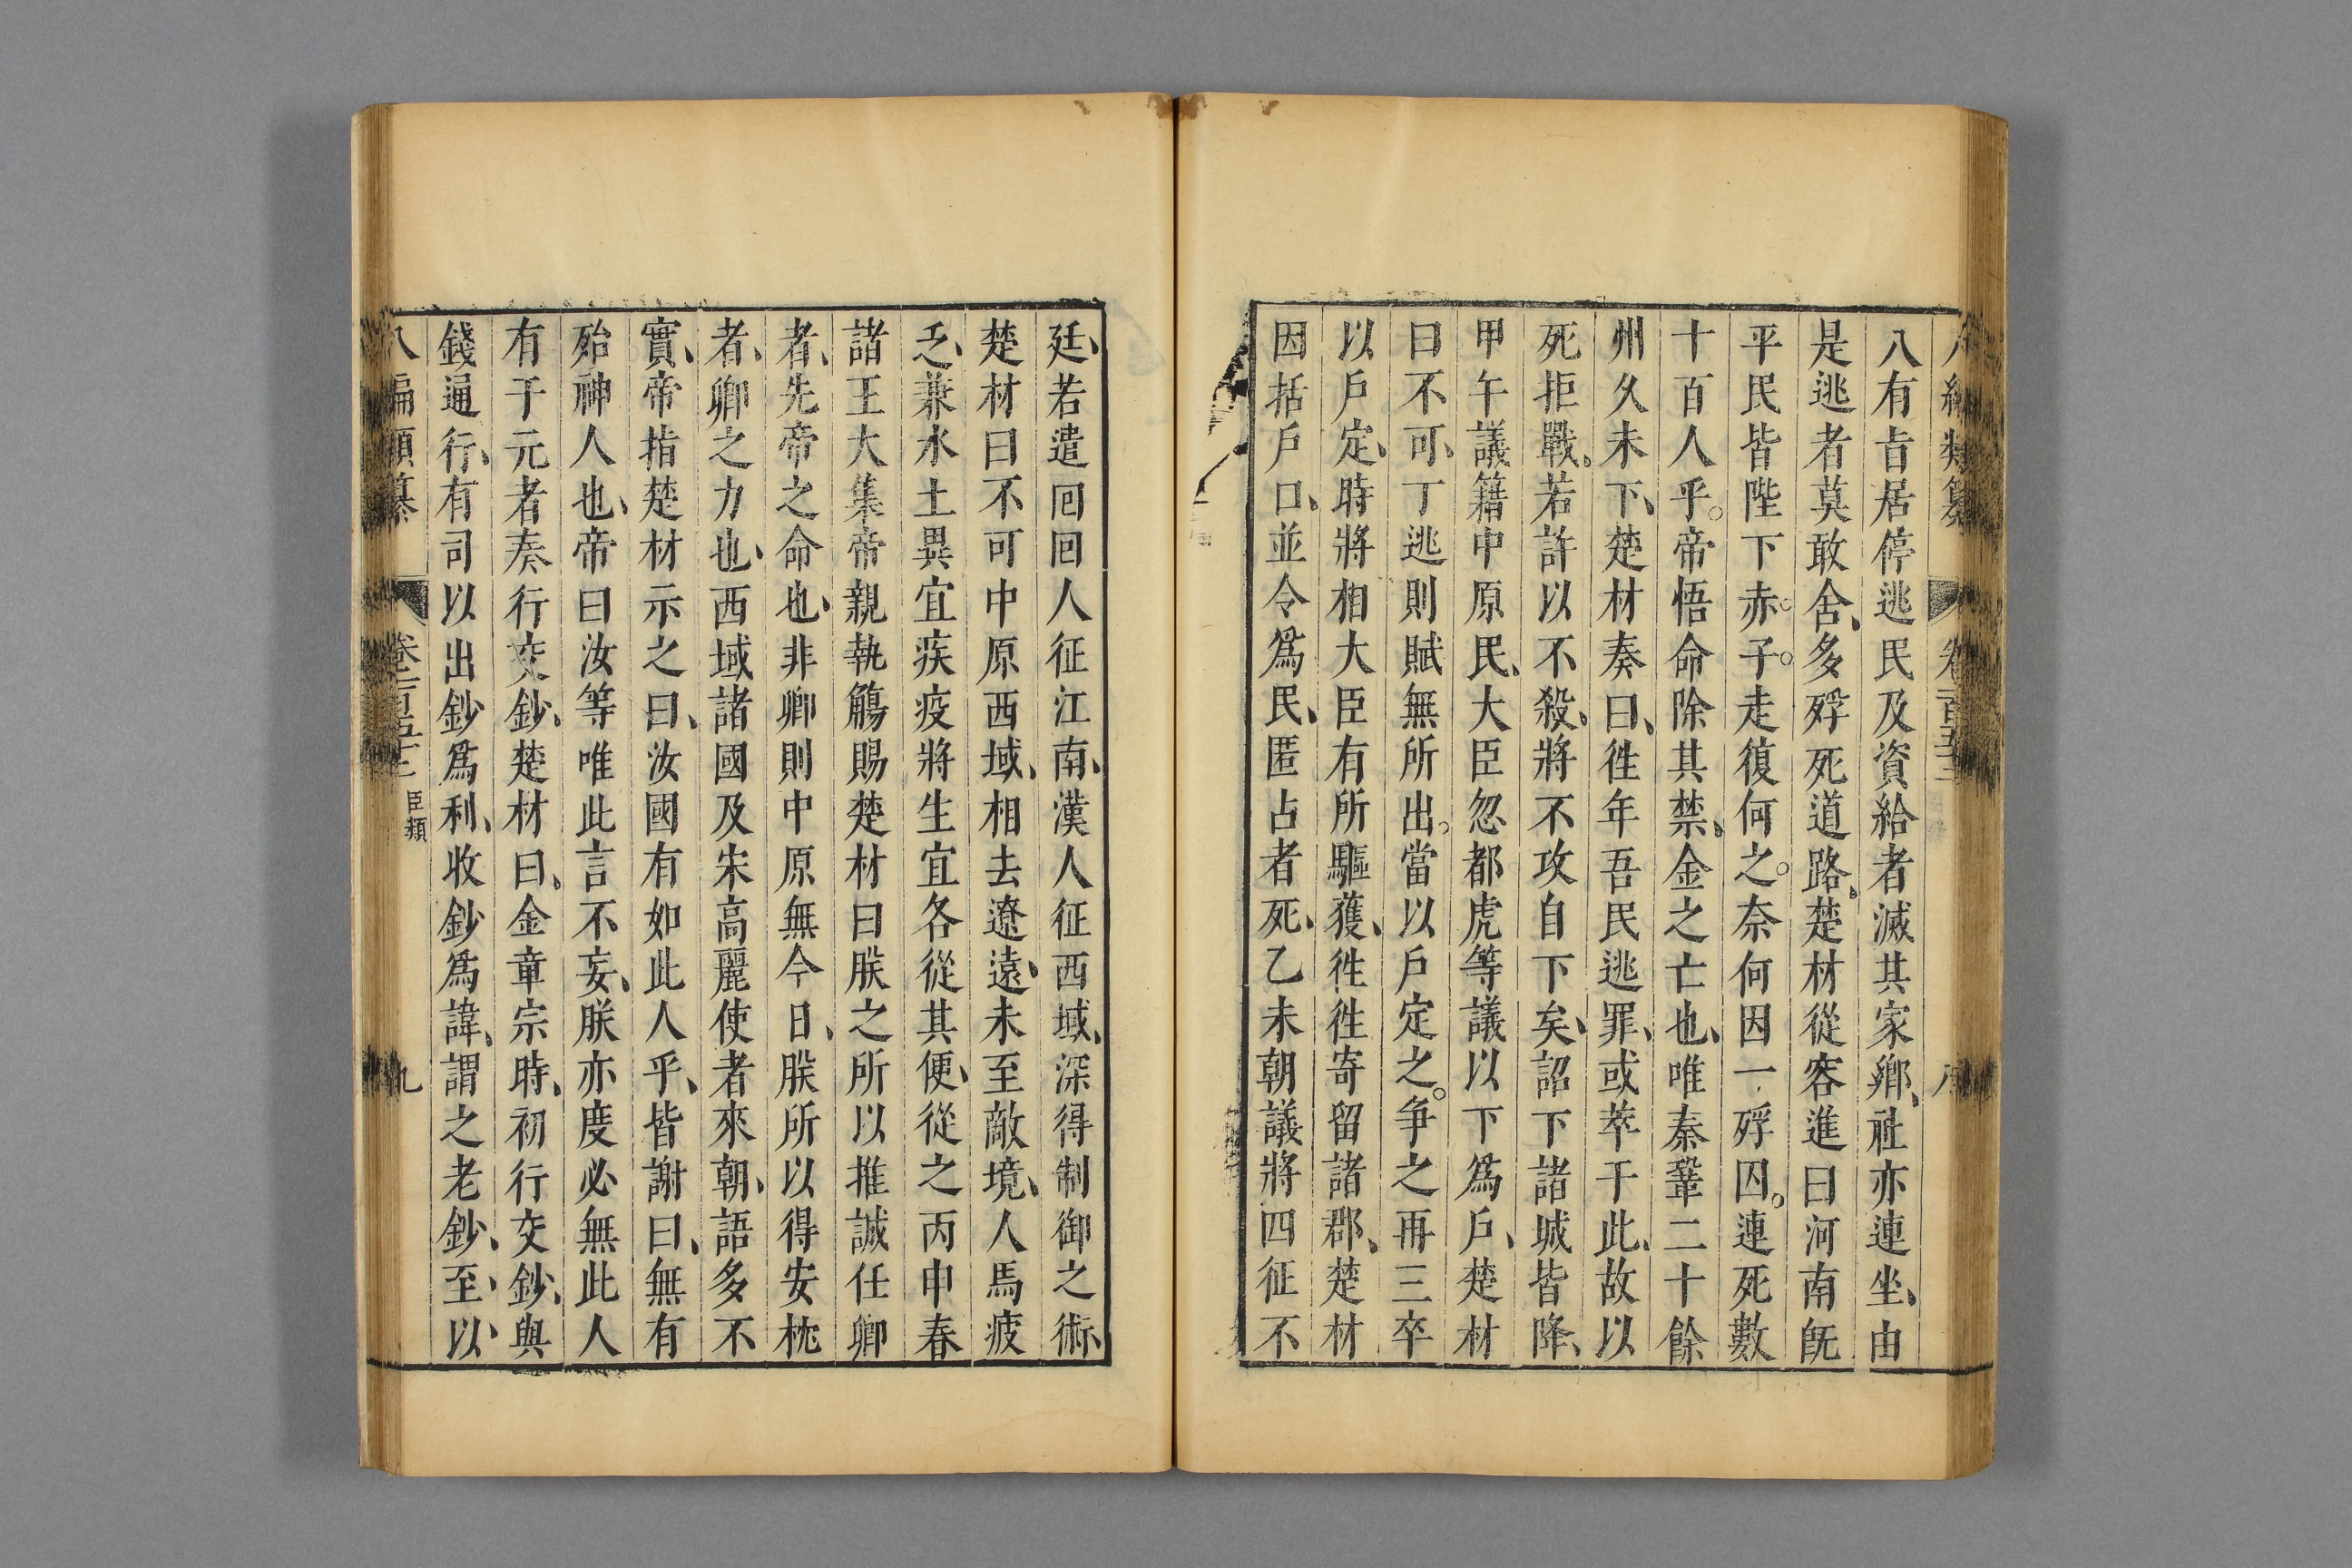 類纂 卷一百五十三
八有㫖居停逃民及資給者滅其家鄉、社亦連坐、由
是逃者莫敢舍、多殍死道路、楚材從容進曰河南旣
平民皆陛下赤子。走復何之。奈何因一殍囚。連死數
十百人乎。帝悟命除其禁、金之亡也、唯秦鞏二十餘
州久未下、楚材奏曰、徃年吾民逃罪、或萃于此、故以
死拒戰。若許以不殺、將不攻自下矣、詔下諸城皆降、
甲午議籍中原民、大臣忽都虎等議以下爲戶、楚材
曰不可、丁逃則賦無所出。當以戶定之。争之再三卒
以戶定、時將相大臣有所驅獲、徃徃寄留諸郡、楚材
因括戶口、並令爲民、匿占者死、乙未朝議將四征不
廷、若遣囘囘人征江南、漢人征西域、深得制御之術、
楚材曰不可中原西域、相去遼遠、未至敵境、人馬疲
乏、兼水土異宜疾疫將生宜各從其便、從之丙申春
諸王大集帝親執觴賜楚材曰朕之所以推誠任卿
者、先帝之命也、非卿則中原無今日、朕所以得安枕
者、卿之力也、西域諸國及宋高麗使者來朝、語多不
實、帝指楚材示之曰、汝國有如此人乎、皆謝曰、無有
殆神人也、帝曰汝等唯此言不妄、朕亦度必無此人
有于元者奏行交鈔、楚材曰、金章宗時、初行交鈔、與
錢通行、有司以出鈔爲利、收鈔爲諱、謂之老鈔、至以
八編類纂 卷一百五十三 臣類 九